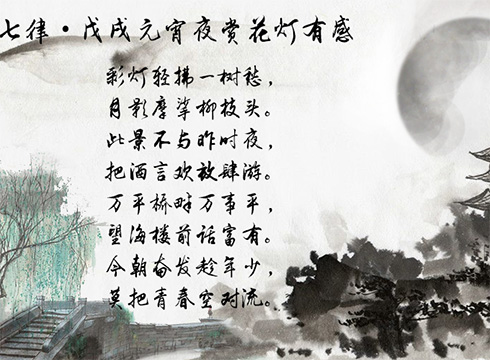 七律·戊戌元宵夜赏花灯有感
彩灯轻拂一树愁，
月影摩挲柳枝头。
此景不与昨时夜，
把酒言欢放肆游。
万平桥畔万事平，
望海楼前话富有。
今朝奋发趁年少，
莫把青春空对流。